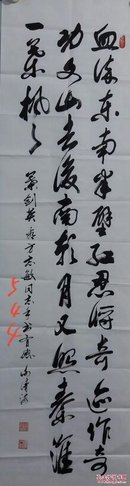 血染东南半壁红忍将奇迹作奇
功文山去后南朝月又照秦淮
一叶枫
叶剑英 方志敏同志手书有感